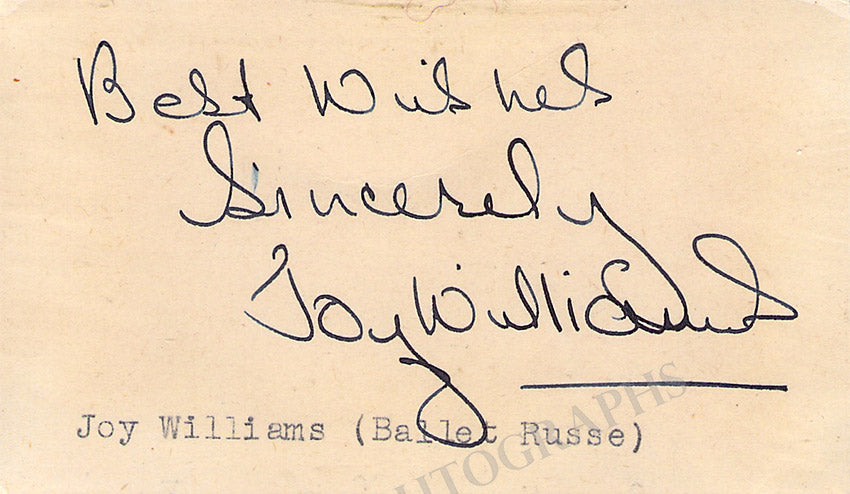 Best Wishes
Sincerely
Joy Williams
Joy Williams (Ballet Russe)
AUTOGRAPHS